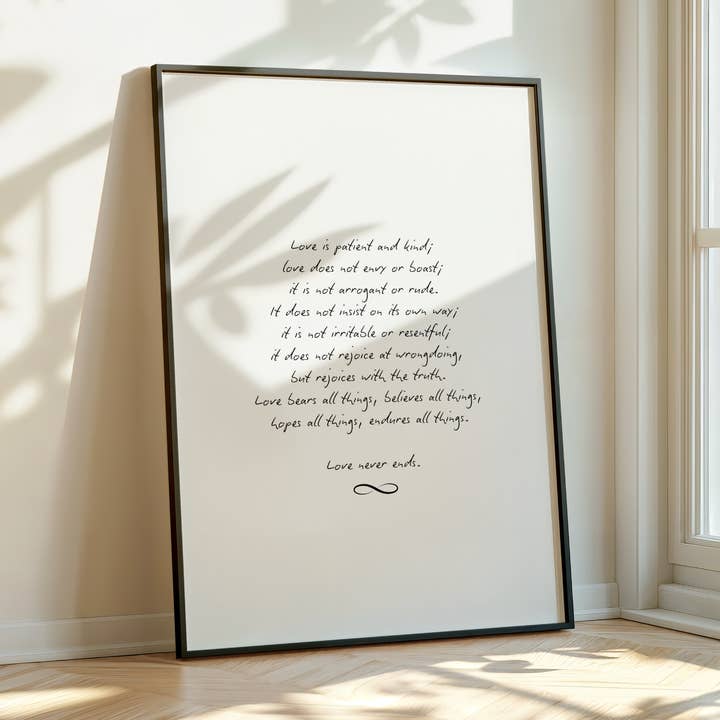 Love is patient and kind;
love does not envy or boast;
it is not arrogant or rude.
It does not insist on its own way;
it is not irritable or resentful;
it does not rejoice at wrongdoing,
but rejoices with the truth.
Love bears all things, believes all things,
hopes all things, endures all things.
Love never ends.